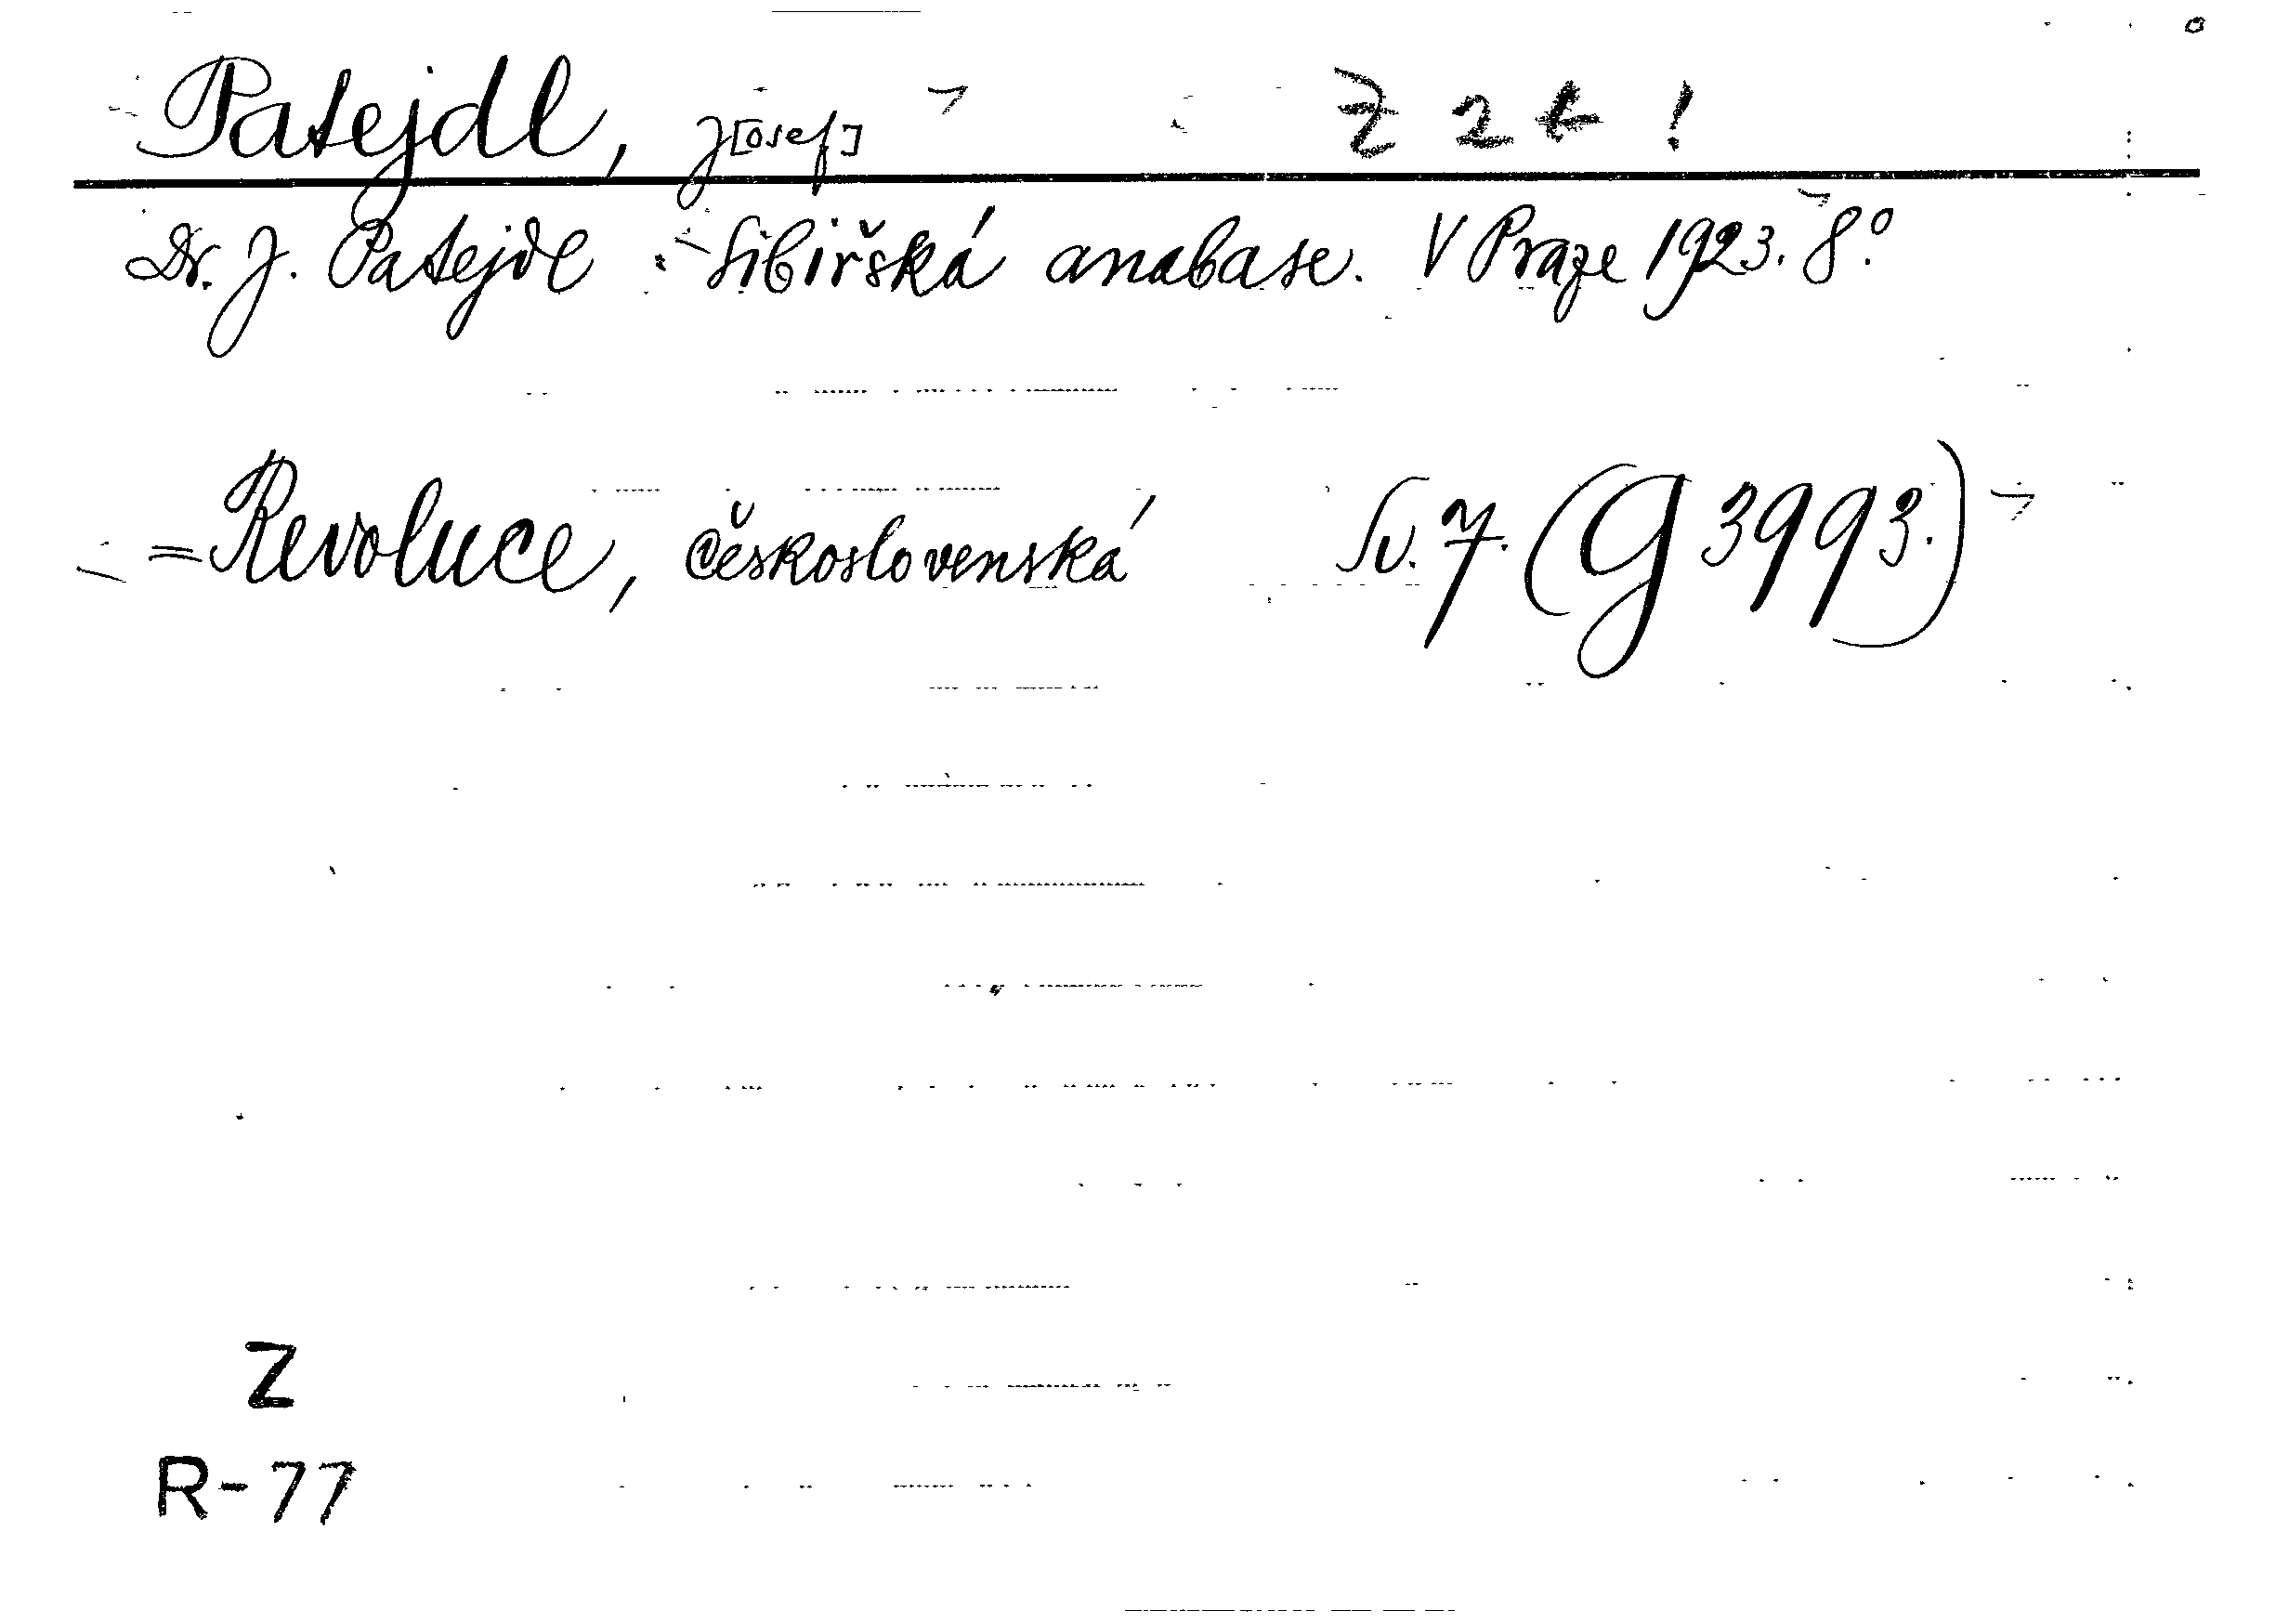 Patejdl, J[osef]
Dr. J. Patejdl : Sibiřská anabase. V Praze 1923. 8°.
= Revoluce, československá Sv. 7. (G 3993.)
Z
R-77